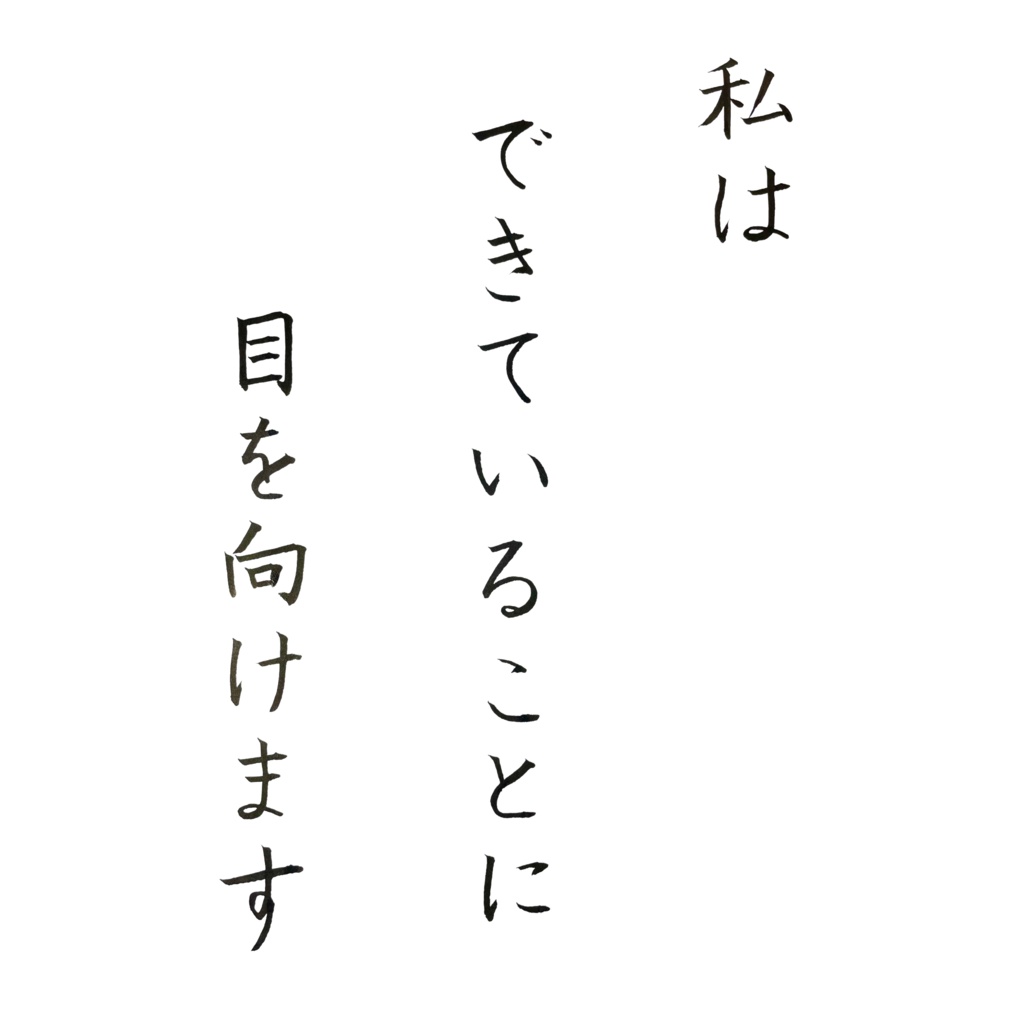 私は
できていることに
目を向けます